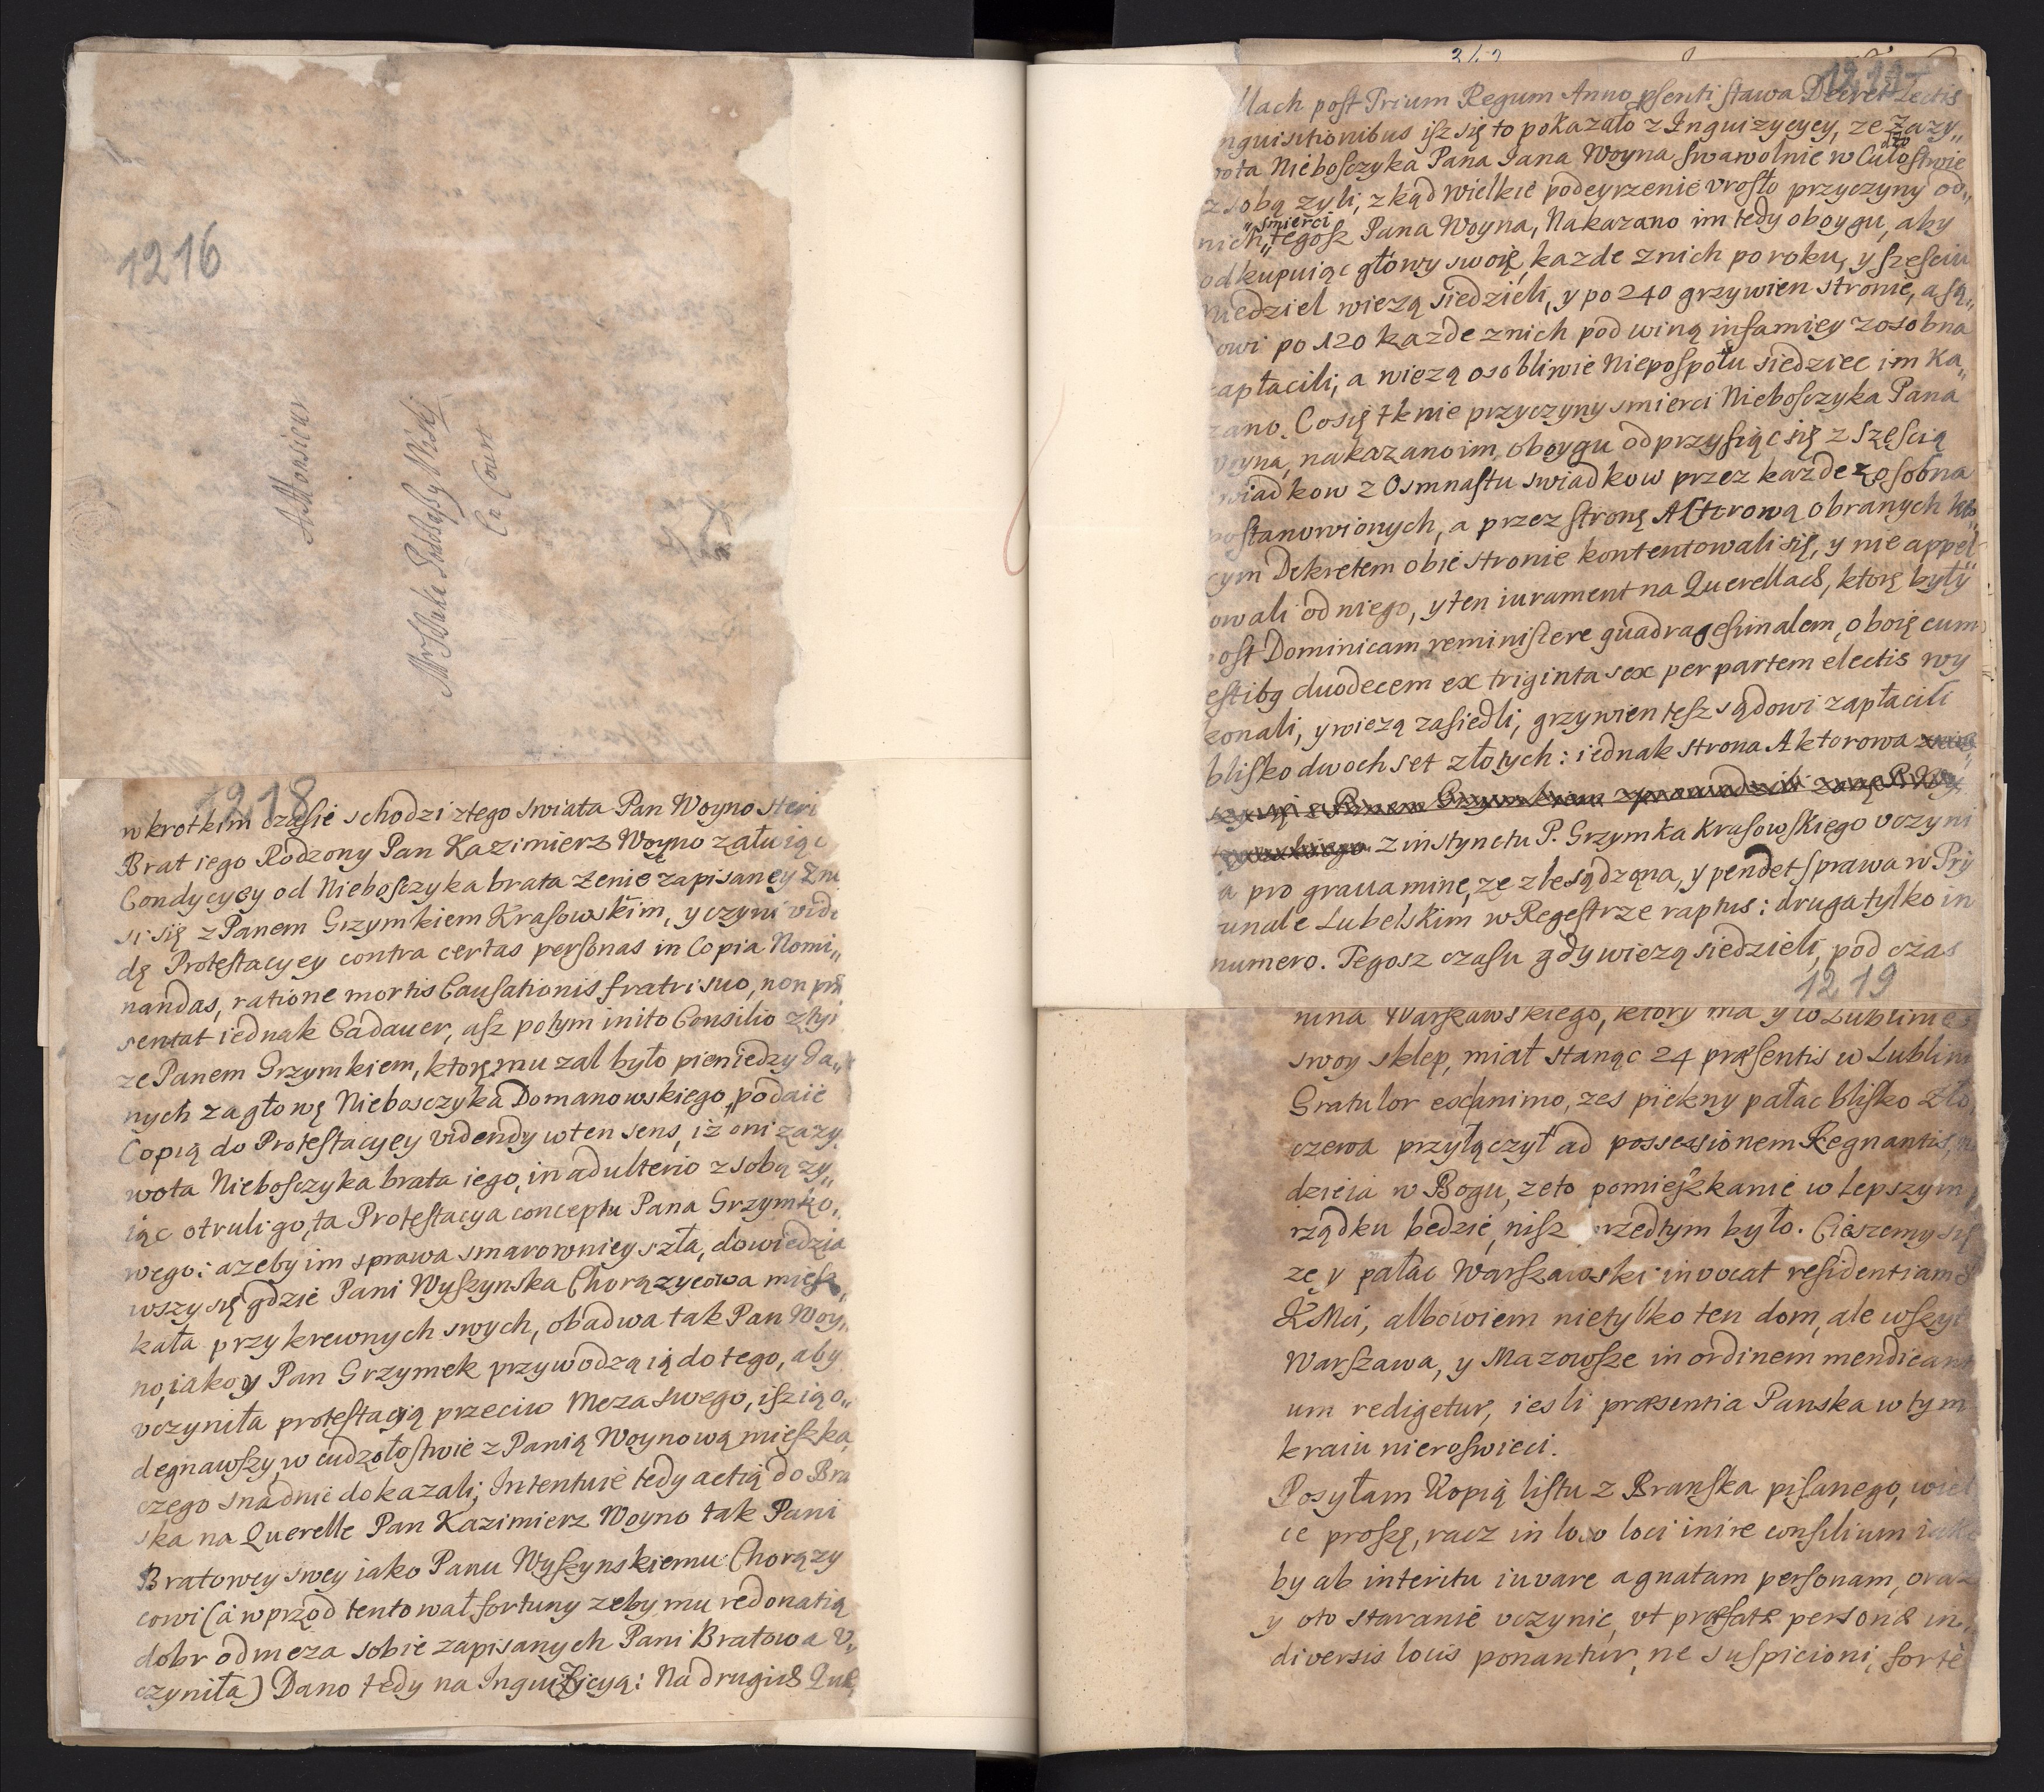 1216
A Monsieur
En Court
1218
w krotkim czasie schodzi ztego swiata Pan Woyno
Brat iego Rodzony Pan Kazimierz Woyno załuiąc
Condycyey od Nieboſczyka brata żenie zapisaney
si się z Panem Grzymkiem Kraſowskim, y czyni
dę Protęstacyey contra certas perſonas in Copia Nomi„
nandas, ratione mortis Cauſationis fratri suo, non
sentat iednak Cadauer, aſz potym inito Conſilio
ze Panem Grzymkiem, ktoręmu zal było pieniedzy Da„
nych za głowę Nieboſczyka Domanowskiego, podaie
Copią do Proteſtacyey videndy w ten sens, iż oni zazy„
wota Nieboſczyka brata iego, in adulterio z sobą zy„
iąc otruli go, ta Proteſtacya conceptu Pana Grzymko„
wego: azeby im sprawa smarowniey szła, dowiedzia
wszy się gdzie Pani Wyſzynska Chorązycowa mieſz„
kała przy krewnych swych, obadwa tak Pan Woy„
no, iako y Pan Grzymek przywodzą ią do tego, aby
vczyniła protestacyą przeciw Męza swego, iſz ią o„
degnawſzy, w cudzołoſtwie z Panią Woynową mieſzka,
czego snadnie dokazali; Intentuie tedy actią do Bra
ska na Querelle Pan Kazimierz Woyno tak Pani
Bratowey swey iako Panu Wyſzynskiemu Chorązy
cowi (a w przod tentował fortuny zeby mu redonatią
dobr od męza sobie zapisanych Pani Bratowa V„
czyniła) Dano tedy na Inquizicyą: Na drugich
llach poſt Trium Regum Anno pſenti ſtawa Decret Lectis
nquisitionibus iſz się to pokazało z Inquizycyey, ze Zazy„
wota Nieboſczyka Pana Iana Woyna ſwawolnie w Cudzołoſtwie
z sobą zyli, zkąd wielkie podeyrzenie vroſło przyczyny od„
nich „smierci„ tegoſz Pana Woyna, Nakazano im tedy oboygu, aby
odkupuiąc głowy swoię, kazde z nich po roku, y ſzeſciu
Niedziel wiezą siedzieli, y po 240 grzywien stronie, a są„
dowi po 120 kazde z nich pod winą infamiey zosobna
zapłacili, a wiezą osobliwie Niepoſpołu siedziec im Ka„
zano. Co się tknie przyczyny smierci Nieboſczyka Pana
Woyna, nakazano im oboygu odprzysiąc się z Szęſcią
swiadkow z Osmnaſtu swiadkow przez kazde zosobna
poſtanowionych, a przez ſtronę Actorową obranych
cym Dekretem obie stronie kontentowali się, y nie appel„
owali od niego, y ten iurament na Querellach, ktorę były
post Dominicam reminiſcere quadrageſimalem, oboię cum
estibq duodecem ex triginta sex per partem electis wy
konali, y wiezą zasiedli, grzywien teſz sądowi zapłacili
bliſko dwoch set złotych: iednak strona Aktorowa
z instynctu P. Grzymka Kraſowskiego vczyni
a pro grauamine, ze zle sądzona, y pendet ſprawa w Try
bunale Lubelskim w Regeſtrze raptus: druga tylko in
numero. Tegosz czasu gdy wiezą siedzieli, pod czas
1219
nina Warſzawskiego, ktory ma y w Lublinie
swoy sklep, miał stanąc 24 præsentis w Lublinie
Gratulor ex animo, zes piekny pałac bliſko Zło
czewa przyłączył ad possessionem Regnantis,
dzieia w Bogu, ze to pomieſzkanie w lepszym
rządku bedzie, nisz przedtym było. Cieszemy się
ze y pałac Warſzawski invocat residentiam
KMci, albowiem nietylko ten dom, ale wſzyt
Warſzawa, y Mazowſze in ordinem mendicant
um redigetur, iesli præsentia Panska w tym
kraiu nieroſwieci.
Posyłam Kopią liſtu z Branſka piſanego, wiel
ce proſzę, racz in loco loci inire conſilium iako
by ab interitu iuvare agnatam perſonam, oraz
y oto staranie vczynic, vt præfatæ personæ in
diversis locis ponantur, ne suſpicioni, forte